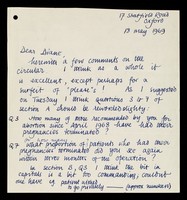 17 Muzgrove Road
Oxford
13 May 1969
Dear Diane
herewith a few comments on the
circular. I think as a whole it
is excellent, except perhaps for a
surfeit of "please's"! As I suggested
on Tuesday I think questions 5 & 7 of
section A should be reworded slightly:
Q5 How many of those recommended by you for
abortion since April 1968 have had their
pregnancies terminated?
Q7 What proportion of patients who had their
pregnancies terminated did you see again
within three months of the operation?
In section B, Q5 think the bit in
capitals is a bit too commanding, couldn't
one have eg patient asked
to go privately (approx numbers)